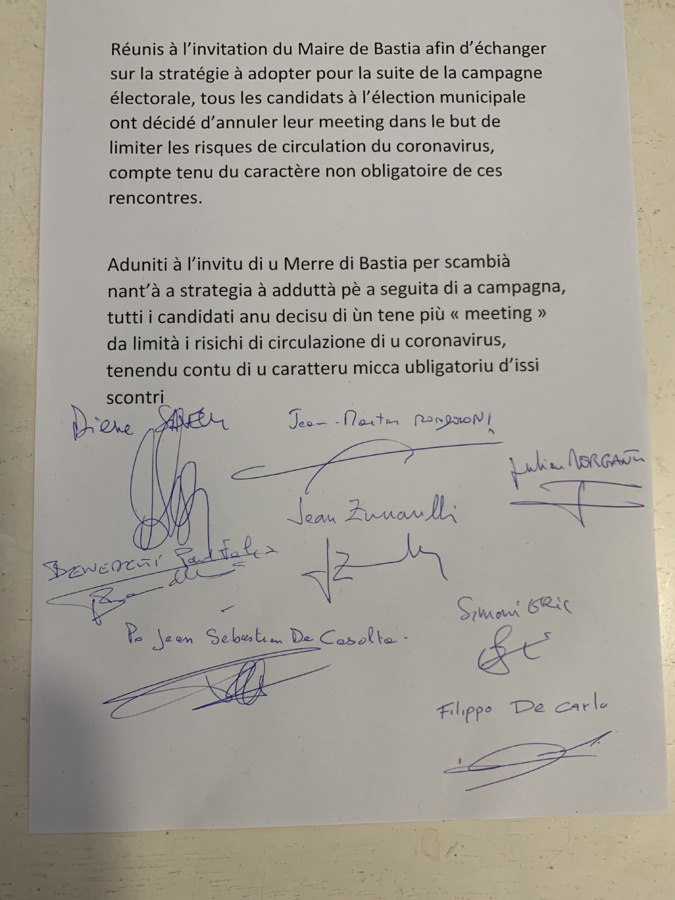 Réunis à l’invitation du Maire de Bastia afin d’échanger
sur la stratégie à adopter pour la suite de la campagne
électorale, tous les candidats à l’élection municipale
ont décidé d’annuler leur meeting dans le but de
limiter les risques de circulation du coronavirus,
compte tenu du caractère non obligatoire de ces
rencontres.
Aduniti à l’invitu di u Merre di Bastia per scambià
nant’à a strategia à adduttà pè a seguita di a campagna,
tutti i candidati anu decisu di ùn tene più « meeting »
da limità i risichi di circulazione di u coronavirus,
tenendu contu di u caratteru micca ubligatoriu d’issi
scontri
Jean-Martin MONDOLONI
Julien MORGANTI
Jean Zuccarelli
BENEDETTI
JZ
Po Jean Sebastien De Casalta.
Simoni ERIC
Filippo De Carlo